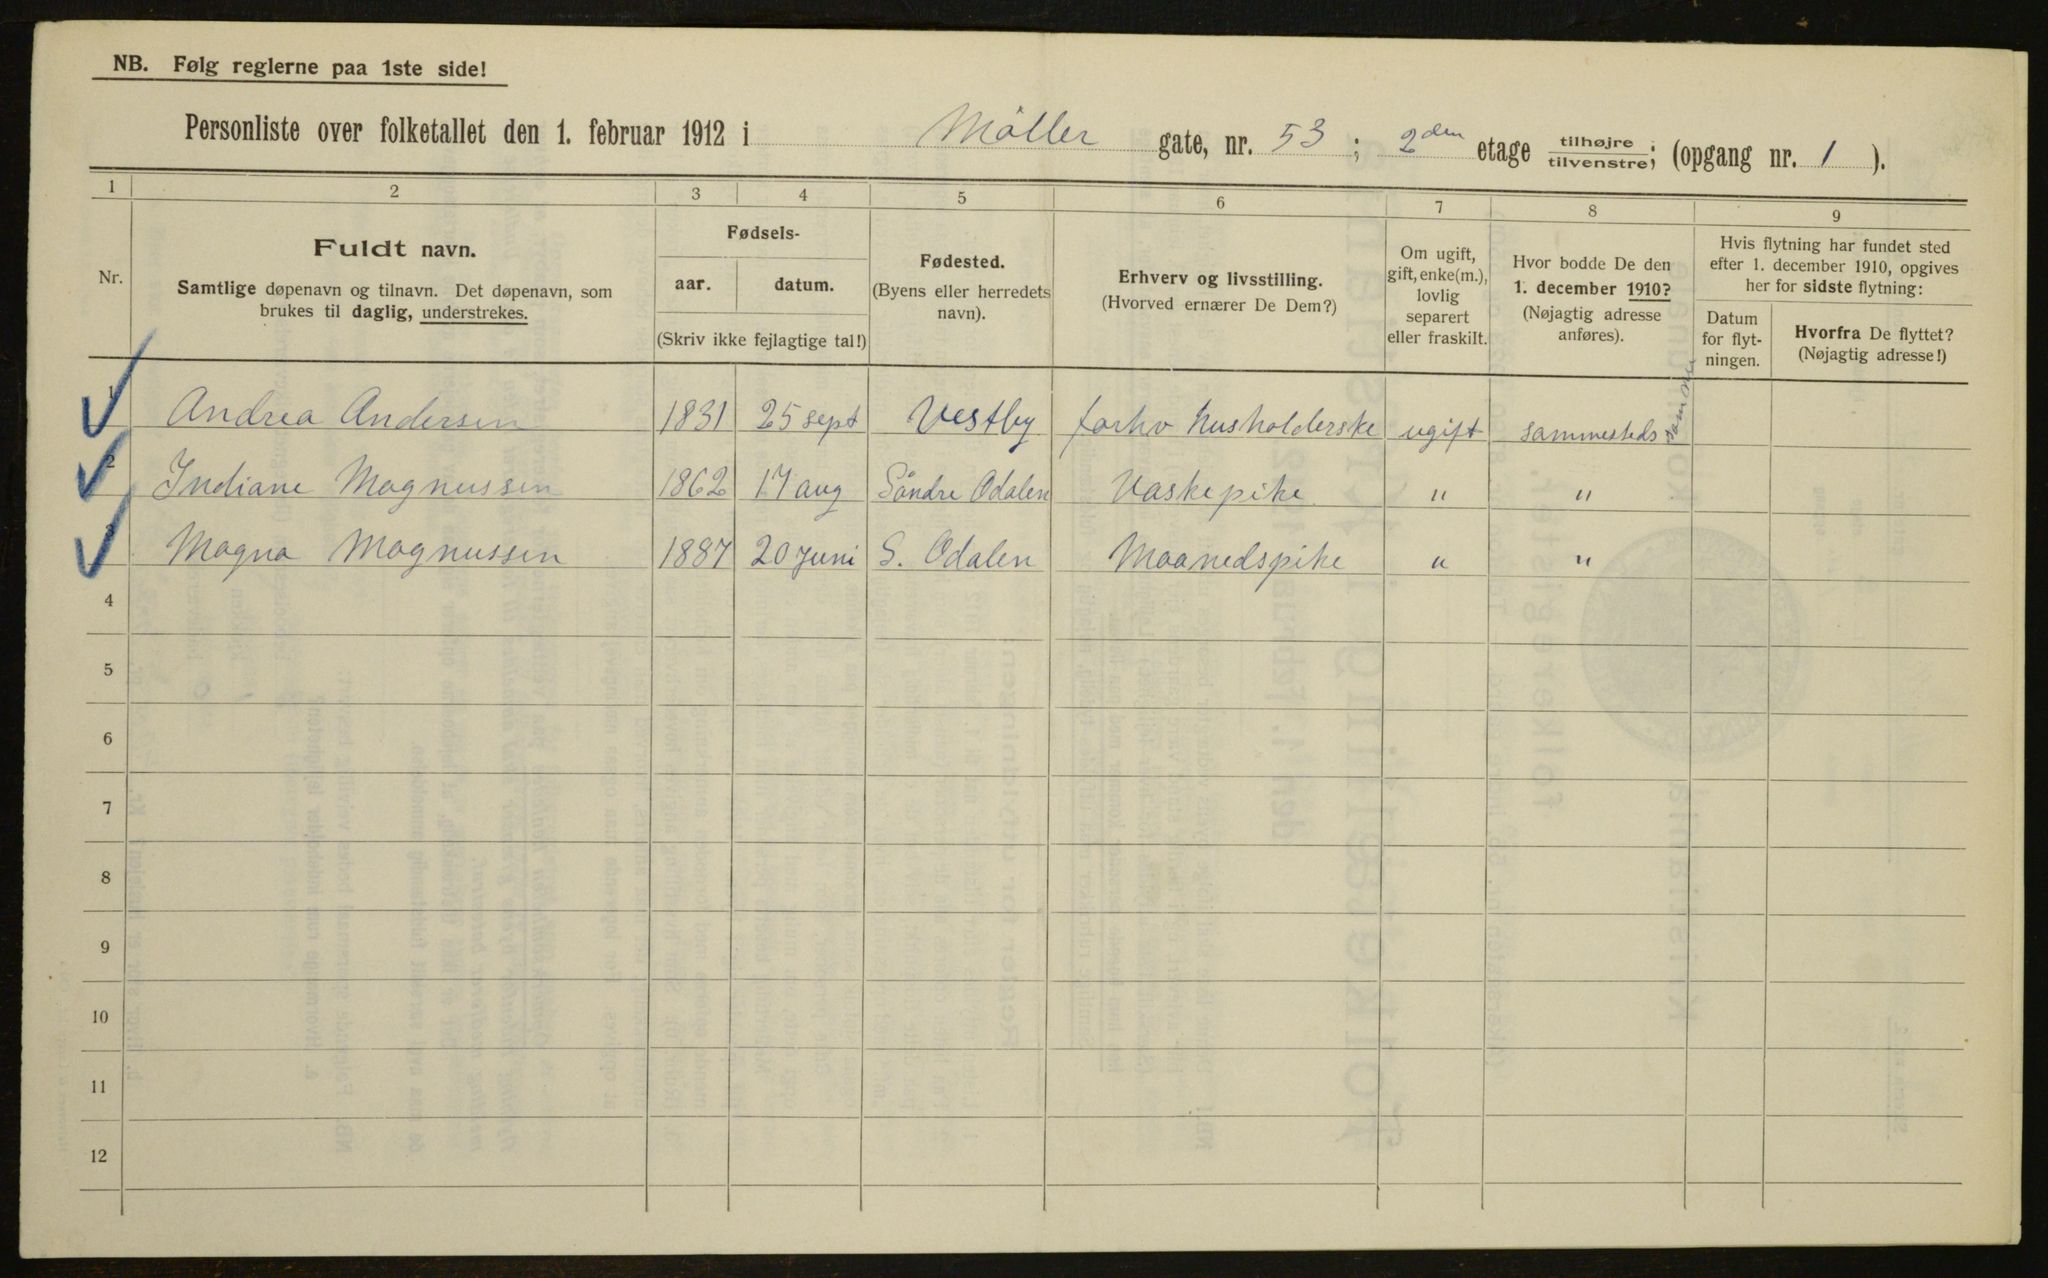 NB. Følg reglerne paa 1ste side!
Personliste over folketallet den 1. februar 1912 i Møller gate, nr. 53 ; 2den etage tilhøjre/tilvenstre; (opgang nr. 1 ).
1 2 3 4 5 6 7 8 9
Nr.
Fuldt navn.
Samtlige døpenavn og tilnavn. Det døpenavn, som
brukes til daglig, understrekes.
Fødsels-
aar. datum.
(Skriv ikke fejlagtige tal!)
Fødested.
(Byens eller herredets
navn).
Erhverv og livsstilling.
(Hvorved ernærer De Dem?)
Om ugift,
gift, enke(m.),
lovlig
separert
eller fraskilt.
Hvor bodde De den
1. december 1910?
(Nøjagtig adresse
anføres).
Hvis flytning har fundet sted
efter 1. december 1910, opgives
her for sidste flytning:
Datum
for flyt-
ningen.
Hvorfra De flyttet?
(Nøjagtig adresse!)
1 Andrea Andersen 1831 25 sept Vestby forhv Husholderske ugift sammesteds
2 Indiane Magnussen 1862 17 aug Söndre Odalen Vaskepike " "
3 Magna Magnussen 1887 20 Juni S. Odalen Maanedspike " "
4
5
6
7
8
9
10
11
12